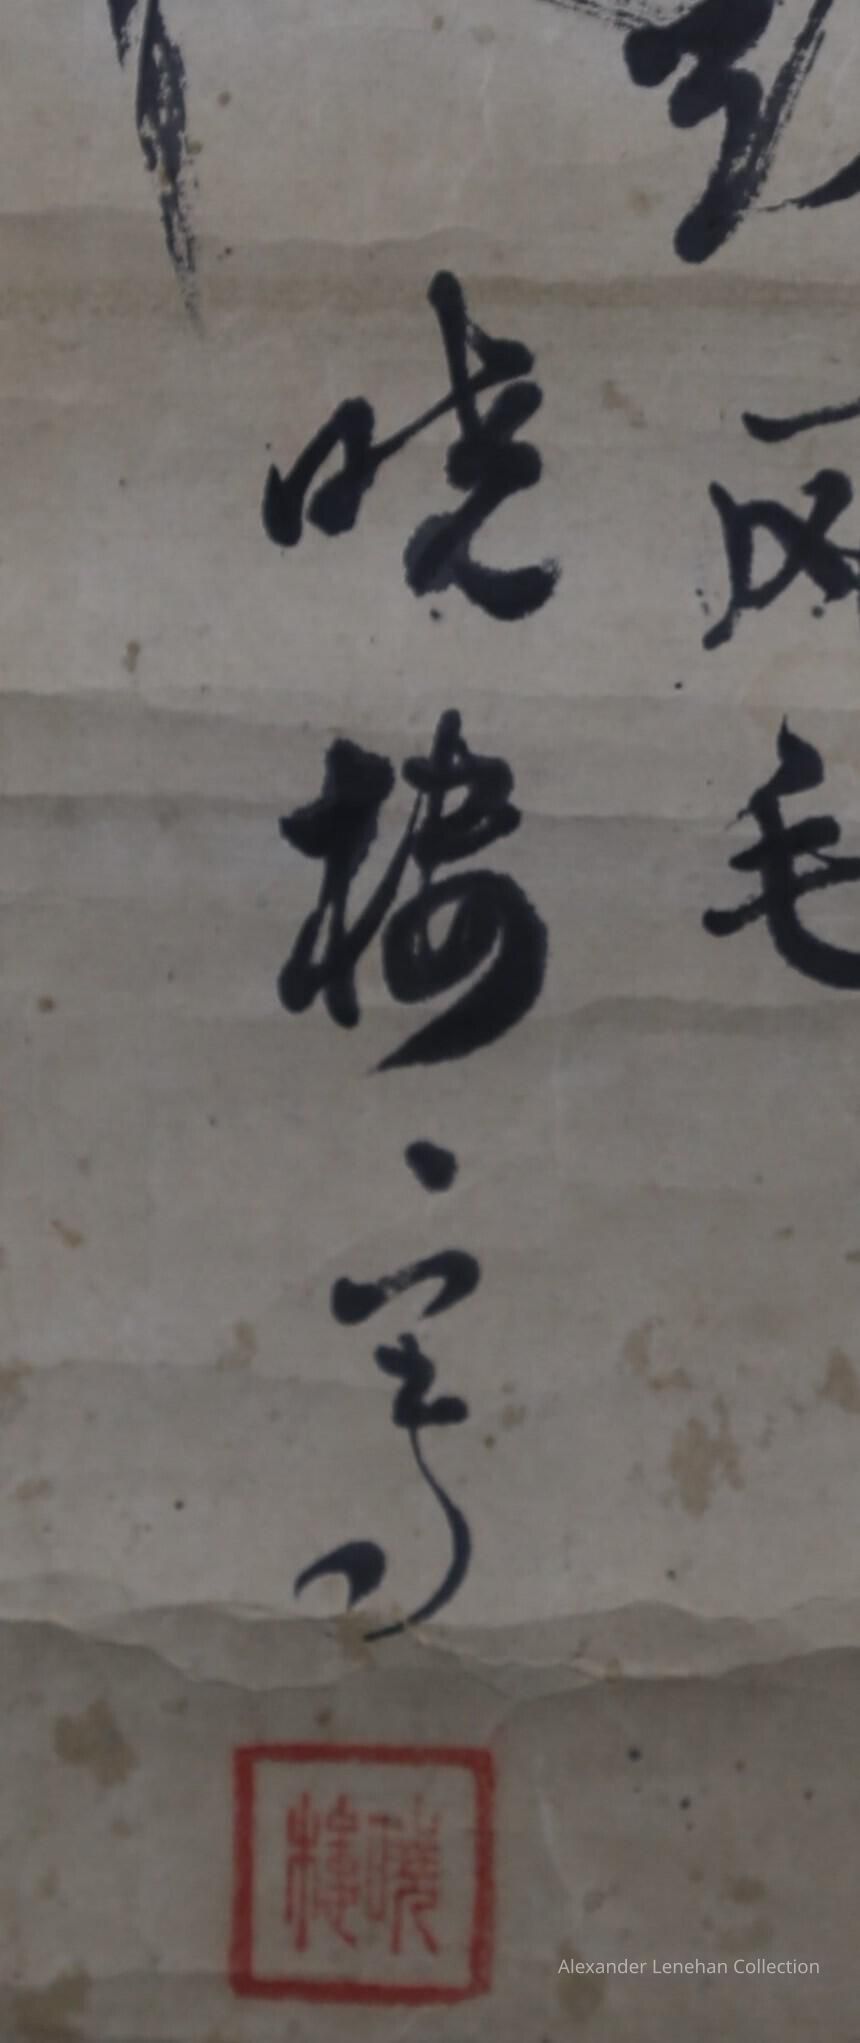 鳳毛
曉樓寫
曉樓
Alexander Lenehan Collection